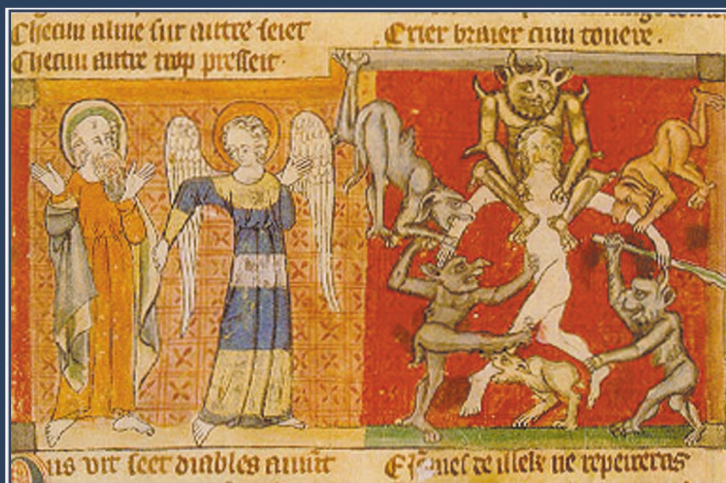 Checun aluie sur autre seiet
Checun autre trop presseit.
Crier braier cum tonere.
Puis vit seet diables avant
ne repeireras